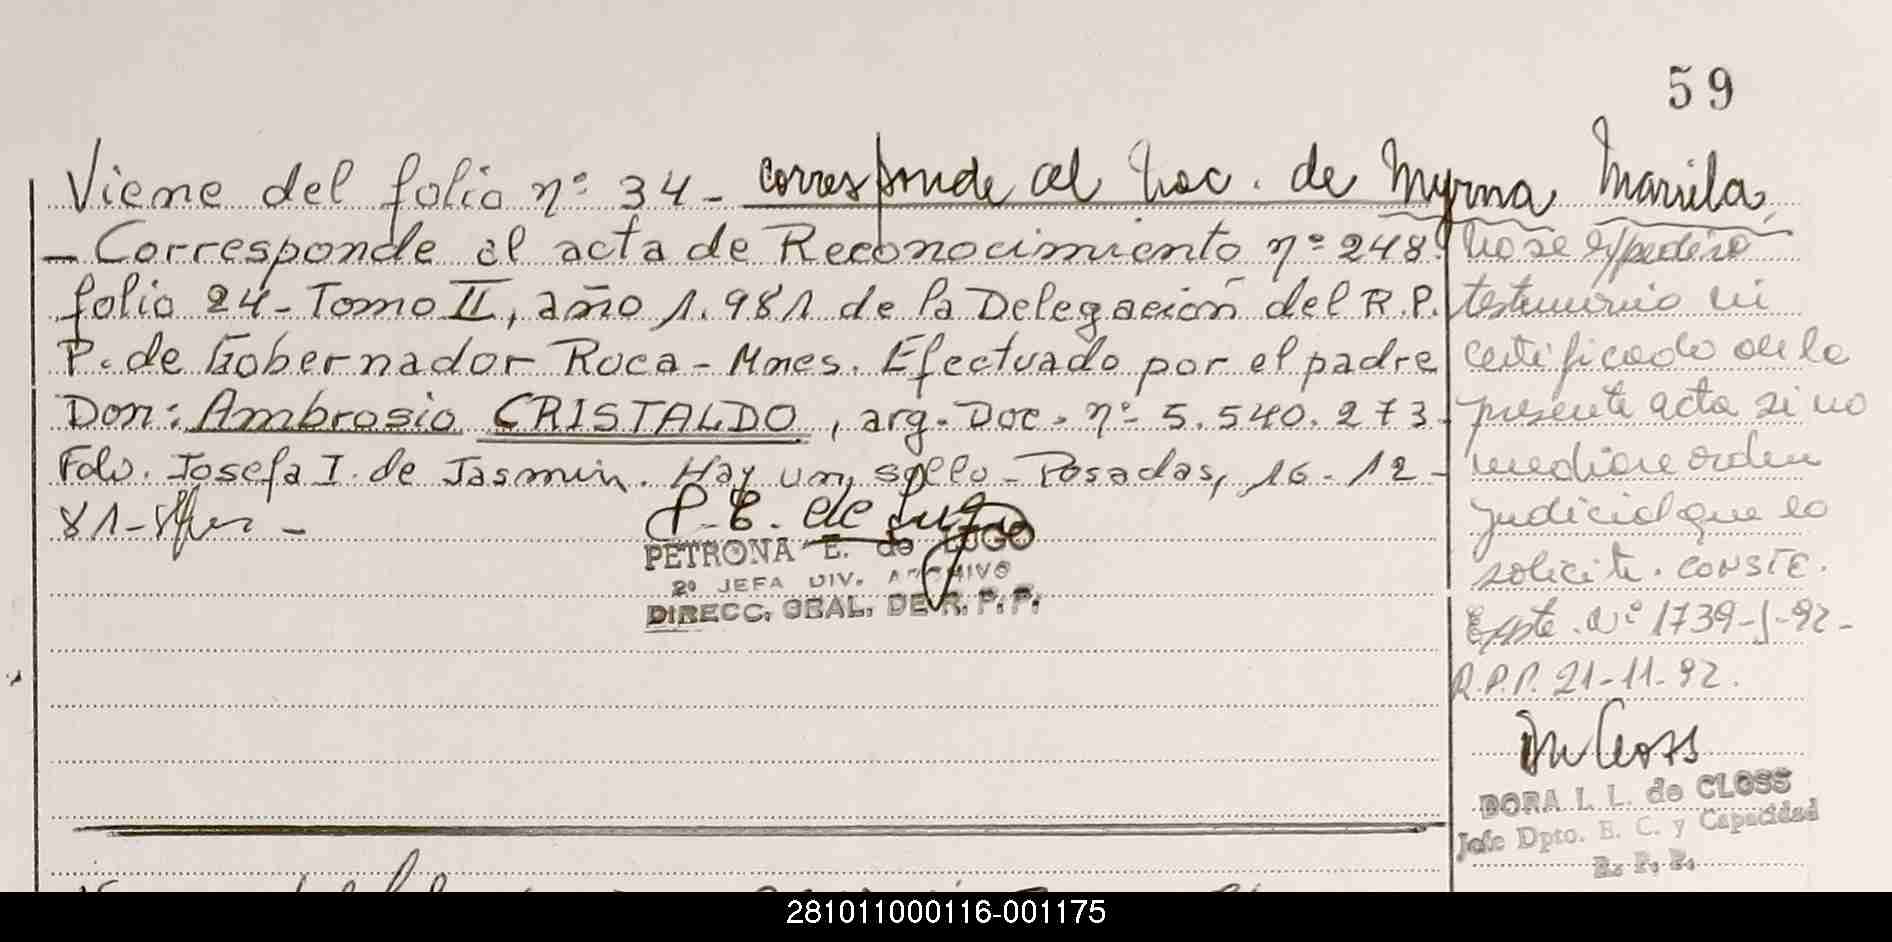 59
Viene del folio nº 34 - corresponde al Nac. de Myrna Mariela
- Corresponde al acta de Reconocimiento nº 248,
folio 24 - Tomo II, año 1.981 de la Delegación del R.P.
P. de Gobernador Roca - Mnes. Efectuado por el padre
Don: Ambrosio CRISTALDO, arg. Doc. nº 5.540.273.
Fdo. Josefa I. de Jasmin. Hay un sello - Posadas, 16-12-
81 -
P. E. de Lugo
PETRONA E. de LUGO
2º JEFA DIV. ARCHIVO
DIRECC. GRAL. DE R. P. P.
No se expedirá
testimonio ni
certificado de la
presente acta si no
mediare orden
judicial que lo
solicite. CONSTE.
Expte. Nº 1739-J-92-
R.P.P. 21-11-92.
DORA I. L. de CLOSS
Jefe Dpto. E. C. y Capacidad
R. P. P.
281011000116-001175